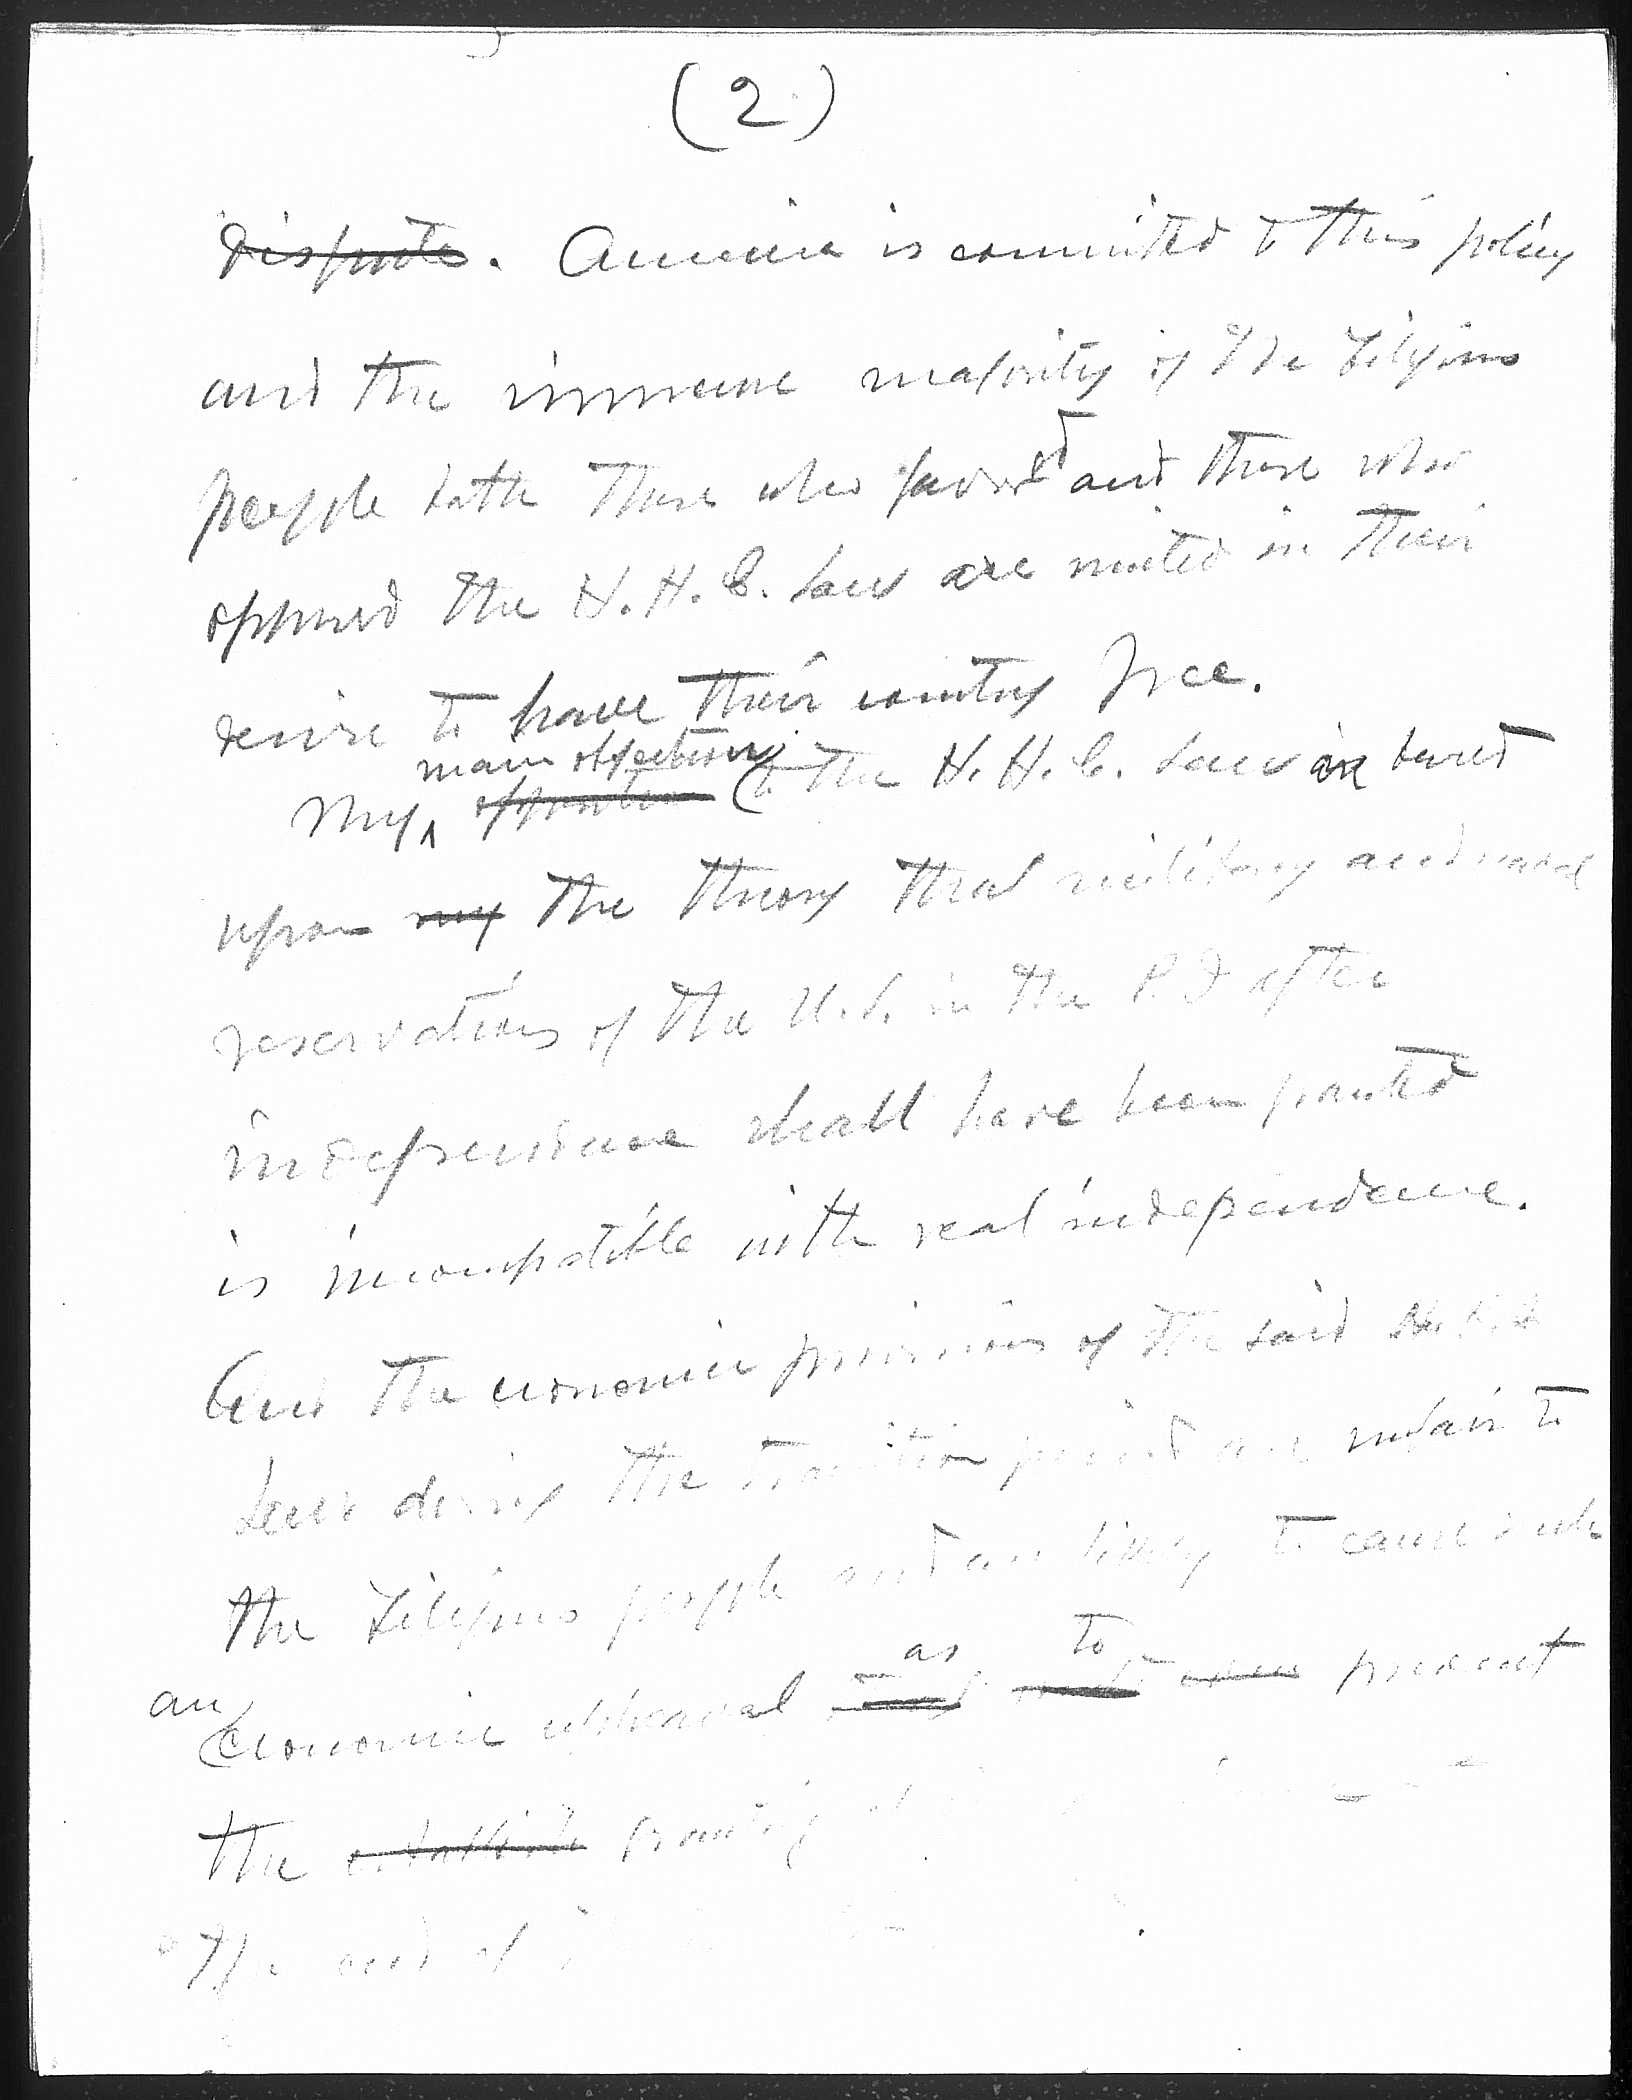 (2)
dispute. America is committed to this policy
and the immense majority of the Filipino
people both those who favored and those who
opposed the H. H. C. Law are united in their
desire to have their country free.
main objection
My opposition to the H. H. C. Law is based
upon my the theory that military and naval
reservations of the U.S. in the P.I after
independence shall have been granted
is incompatible with real independence.
And the economic provisions of the said
Law during the transition period are unfair to
the Filipino people and are likely to cause such
as to
an economic upheaval prevent
the granting of
the end of